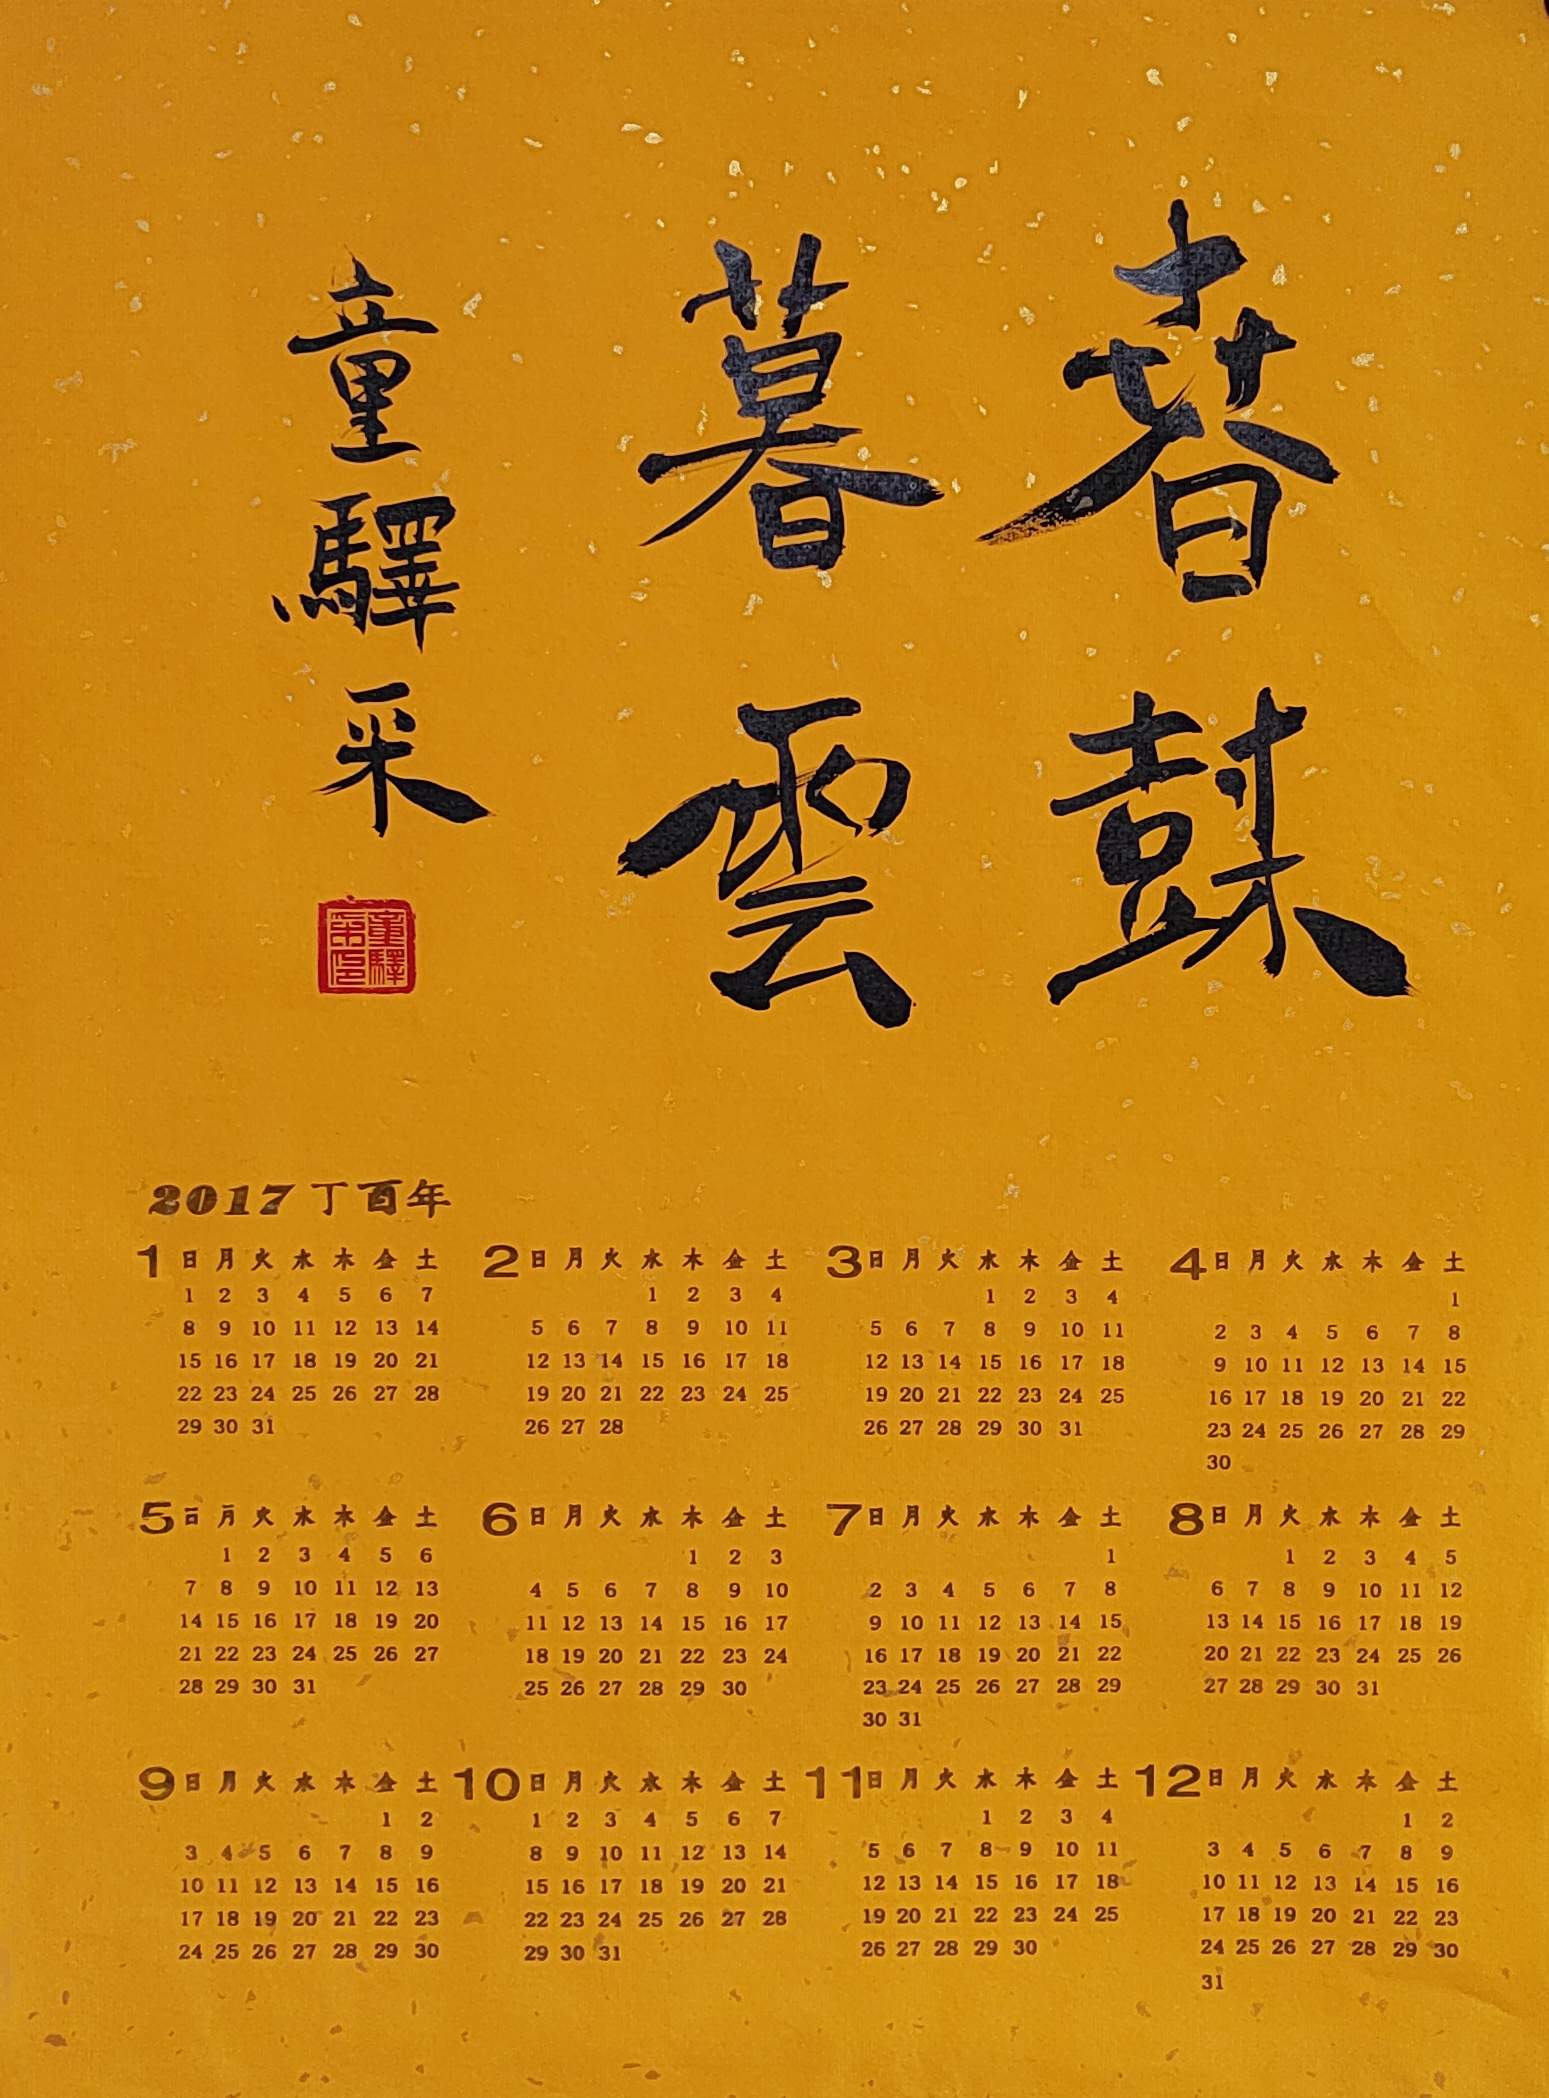 春樹
暮雲
童驛采
童驛
采印
2017 丁酉年
1 日 月 火 水 木 金 土
1 2 3 4 5 6 7
8 9 10 11 12 13 14
15 16 17 18 19 20 21
22 23 24 25 26 27 28
29 30 31
2 日 月 火 水 木 金 土
1 2 3 4
5 6 7 8 9 10 11
12 13 14 15 16 17 18
19 20 21 22 23 24 25
26 27 28
3 日 月 火 水 木 金 土
1 2 3 4
5 6 7 8 9 10 11
12 13 14 15 16 17 18
19 20 21 22 23 24 25
26 27 28 29 30 31
4 日 月 火 水 木 金 土
1
2 3 4 5 6 7 8
9 10 11 12 13 14 15
16 17 18 19 20 21 22
23 24 25 26 27 28 29
30
5 日 月 火 水 木 金 土
1 2 3 4 5 6
7 8 9 10 11 12 13
14 15 16 17 18 19 20
21 22 23 24 25 26 27
28 29 30 31
6 日 月 火 水 木 金 土
1 2 3
4 5 6 7 8 9 10
11 12 13 14 15 16 17
18 19 20 21 22 23 24
25 26 27 28 29 30
7 日 月 火 水 木 金 土
1
2 3 4 5 6 7 8
9 10 11 12 13 14 15
16 17 18 19 20 21 22
23 24 25 26 27 28 29
30 31
8 日 月 火 水 木 金 土
1 2 3 4 5
6 7 8 9 10 11 12
13 14 15 16 17 18 19
20 21 22 23 24 25 26
27 28 29 30 31
9 日 月 火 水 木 金 土
1 2
3 4 5 6 7 8 9
10 11 12 13 14 15 16
17 18 19 20 21 22 23
24 25 26 27 28 29 30
10 日 月 火 水 木 金 土
1 2 3 4 5 6 7
8 9 10 11 12 13 14
15 16 17 18 19 20 21
22 23 24 25 26 27 28
29 30 31
11 日 月 火 水 木 金 土
1 2 3 4
5 6 7 8 9 10 11
12 13 14 15 16 17 18
19 20 21 22 23 24 25
26 27 28 29 30
12 日 月 火 水 木 金 土
1 2
3 4 5 6 7 8 9
10 11 12 13 14 15 16
17 18 19 20 21 22 23
24 25 26 27 28 29 30
31